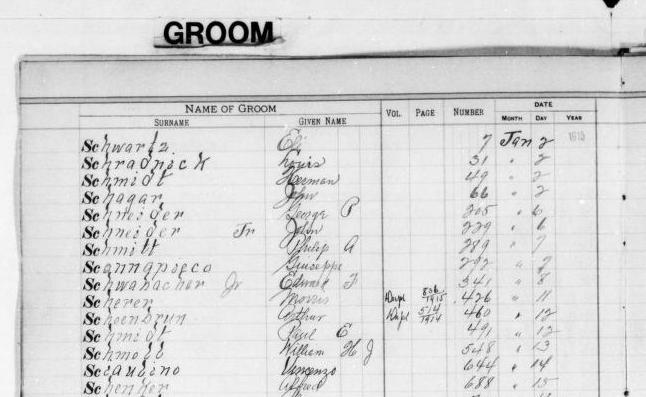 GROOM
NAME OF GROOM VOL. PAGE NUMBER DATE
SURNAME GIVEN NAME MONTH DAY YEAR
Schwartz Eli 7 Jan 2
Schradnock Louis 31 " 2
Schmidt Herman 49 " 2
Schagar John 66 " 2
Schneider George P 205 " 6
Schneider Jr John 229 " 6
Schmitt Philip A 289 " 7
Scannapieco Giuseppe 292 " 7
Schwabacher Jr Edward F 341 " 8
Scherer Morris 836 1915 426 " 11
Schoenbrun Arthur 514 1914 460 " 12
Schmidt Paul E 491 " 12
Schmoll William H J 548 " 13
Scaubino Vincenzo 644 " 14
Schenker Alfred 688 " 15